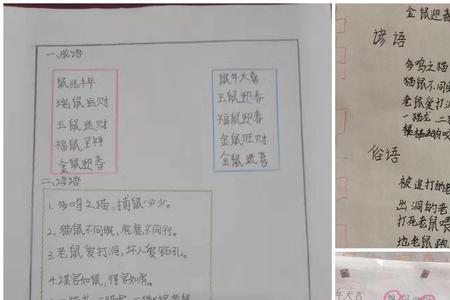 一.成语
鼠兆丰年
瑞鼠运财
玉鼠迎财
福鼠呈祥
金鼠迎春
鼠年大喜
玉鼠迎春
福鼠迎春
金鼠旺财
金鼠迎喜
二.谚语
1.多鸣之猫，捕鼠必少。
2.猫鼠不同眠，虎鹿不同行。
3.老鼠爱打洞，坏人爱钻孔。
4.谋官如鼠，得官如虎。
金鼠迎春
谚语
多鸣之猫
猫鼠不同
老鼠爱打
俗语
被追打的老
出洞的老
打死老鼠喂
地老鼠跑
年大吉